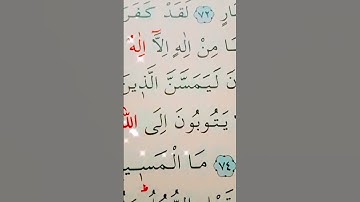 ارٍ ﴿٧٢﴾ لَقَدْ كَفَرَ
مَا مِنْ اِلٰهٍ اِلَّٓا اِلٰهٌ
نَ لَيَمَسَّنَّ الَّذ۪ينَ
يَتُوبُونَ اِلَى اللّٰهِ
﴿٧٤﴾ مَا الْمَس۪يحُ